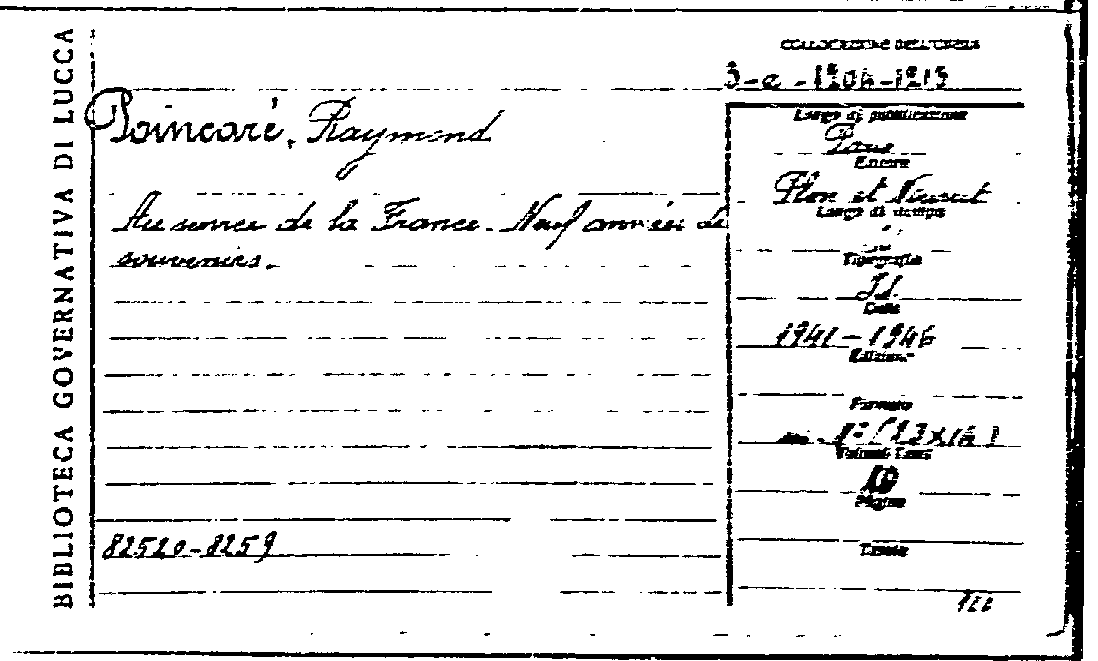 BIBLIOTECA GOVERNATIVA DI LUCCA
COLLOCAZIONE DELL'OPERA
Poincaré, Raymond
Luogo di pubblicazione
Paris
Editore
Au service de la France. Neuf années de
souvenirs.
Plon et Nourrit
Luogo di stampa
Tipografia
Id.
Data
1941-1946
Edizione
Formato
Volumi
10
Pagine
82520-8259